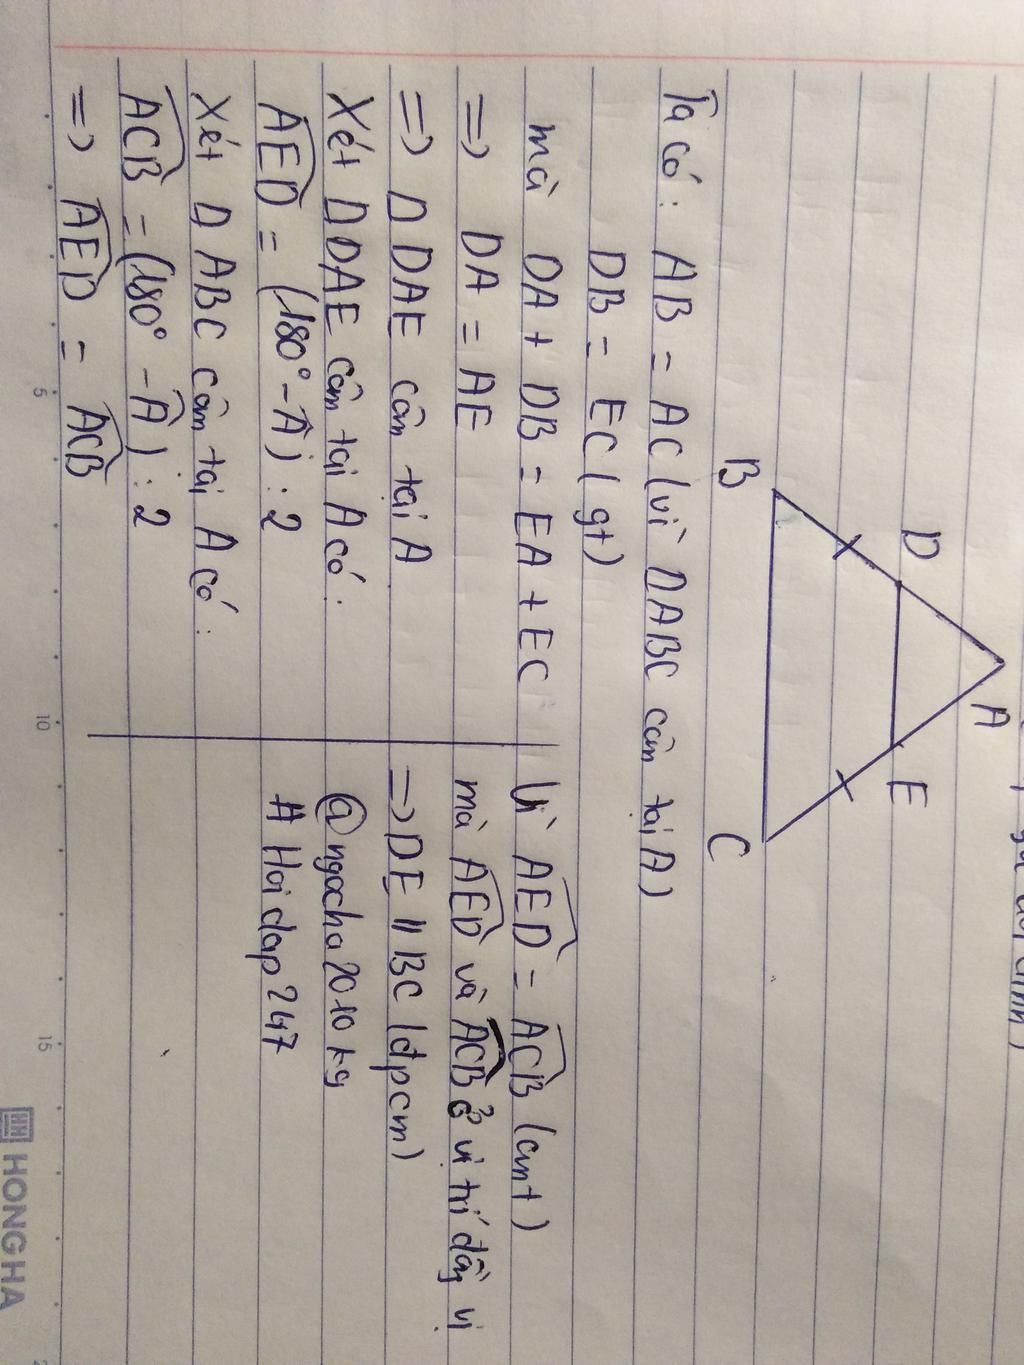 A
D
E
B
C
Ta có: AB = AC (vì ΔABC cân tại A)
DB = EC (gt)
mà DA + DB = EA + EC
=> DA = AE
=> Δ DAE cân tại A
Xét Δ DAE cân tại A có:
AED = (180° - Â) : 2
Xét Δ ABC cân tại A có:
ACB = (180° - Â) : 2
=> AED = ACB
Vì AED = ACB (cmt)
mà AED và ACB ở vị trí đồng vị
=> DE // BC (đpcm)
@ngocha2010kg
# Hoidap247
5
10
15
HH HONG HA